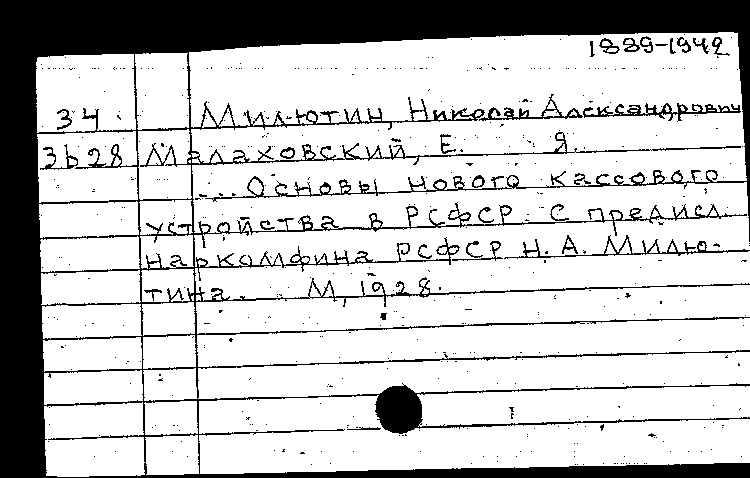 1889-1942
34. Милютин, Николай Александрович
3b28 Малаховский, Е. Я.
... Основы нового кассового
устройства в РСФСР. С предисл.
наркомфина РСФСР Н. А. Милю-
тина. М, 1928.